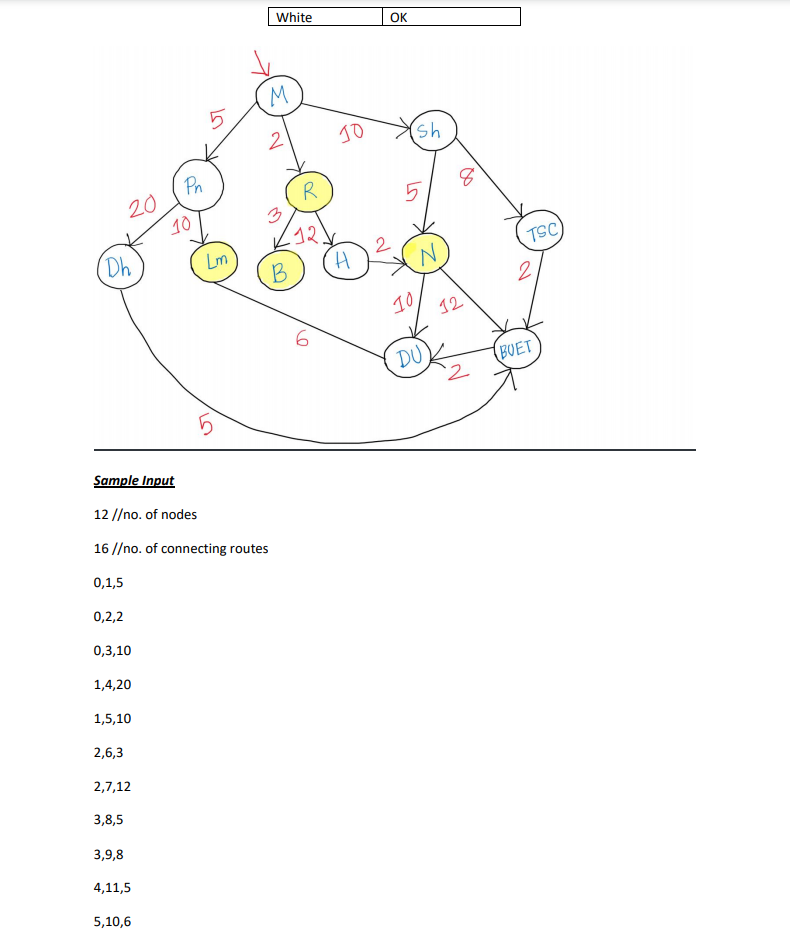 White OK
M
5
2
10
Sh
Pn
R
5
8
20
10
3
12
TSC
Dh
Lm
B
H
2
N
2
10
12
6
DU
BUET
2
5
Sample Input
12 //no. of nodes
16 //no. of connecting routes
0,1,5
0,2,2
0,3,10
1,4,20
1,5,10
2,6,3
2,7,12
3,8,5
3,9,8
4,11,5
5,10,6